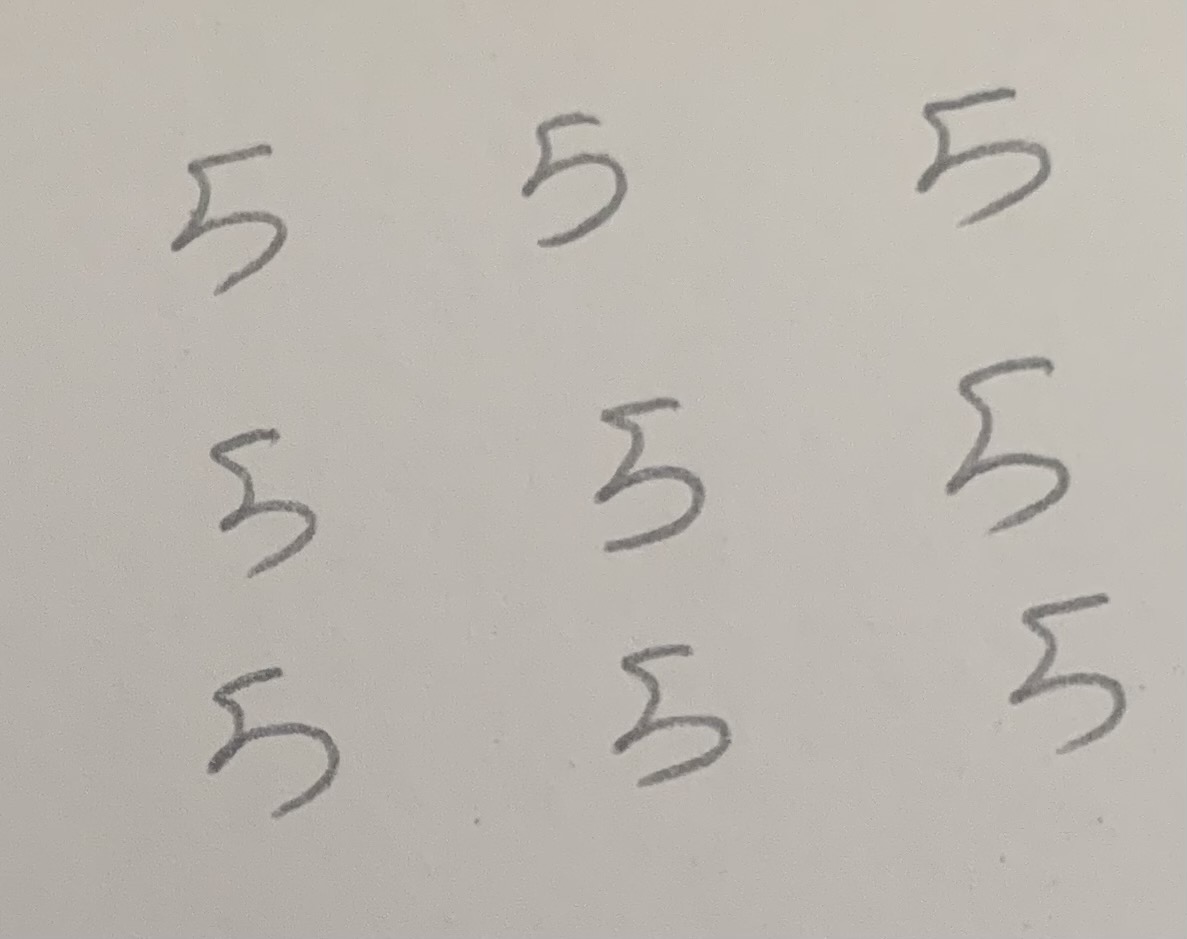 5 5 5
5 5 5
5 5 5